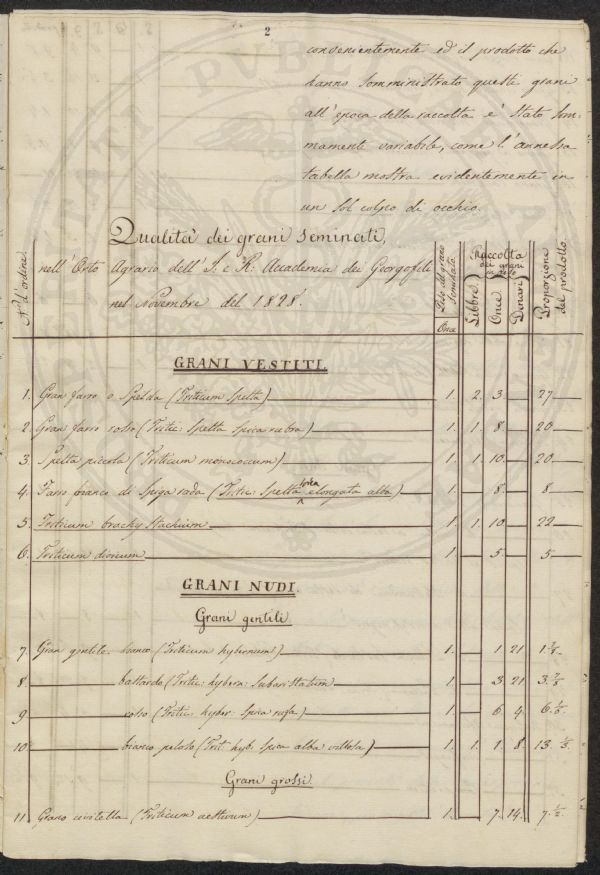 2
convenientemente ed il prodotto che
hanno somministrato questi grani
all'epoca della raccolta e' stato som-
mamente variabile, come l'annessa
tabella mostra evidentemente in
un sol colpo di occhio.
N. d'ordine
Qualità dei grani seminati,
nell'Orto Agrario dell'I. e R. Accademia dei Georgofili
nel Novembre del 1828.
Peso del grano seminato
Once
Raccolta dei grani
Libbre
Once
Denari
Proporzione del prodotto
GRANI VESTITI.
1. Gran farro o Spelda (Triticum Spelta) 1. 2. 3. 27
2. Gran farro rosso (Tritic: Spelta spica rubra) 1. 1. 8. 20
3. Spelta piccola (Triticum monococcum) 1. 1. 10. 20
4. Farro bianco di Spiga rada (Tritic: Spelta spica elongata alba) 1. 8. 8
5. Triticum brachystachium 1. 1. 10. 22
6. Triticum dicoccum 1. 5. 5
GRANI NUDI.
Grani gentili
7. Gran gentile: bianco (Triticum hybernum) 1. 1. 21 1. 7/8.
8. bastardo (Tritic: hybern: Subaristatum 1. 3. 21 3. 7/8
9 rosso (Tritic: hyber: Spica rufa) 1. 6. 4. 6. 1/6.
10. bianco peloso (Trit: hyb. Spica alba villosa) 1. 1. 1. 8 13. 1/3.
Grani grossi
11. Grano civitella (Triticum aestivum) 1. 7. 14. 7. 1/2.
APUBLI